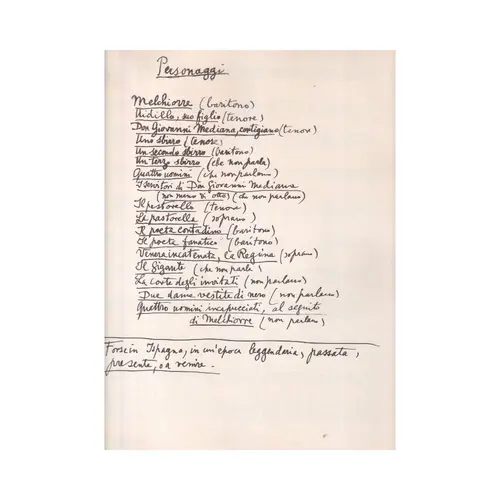 Personaggi
Melchiorre (baritono)
Vidillo, suo figlio (tenore)
Don Giovanni Mediana, cortigiano (tenore)
Uno sbirro (tenore)
Un secondo sbirro (baritono)
Un terzo sbirro (che non parla)
Quattro uomini (che non parlano)
I servitori di Don Giovanni Mediana
(non meno di otto) (che non parlano)
Il pastorello (tenore)
La pastorella (soprano)
Il poeta contadino (baritono)
Il poeta fanatico (baritono)
Venere incatenata, la Regina (soprano)
Il Gigante (che non parla)
La corte degli invitati (non parlano)
Due dame vestite di nero (non parlano)
Quattro uomini incapucciati, al seguito
di Melchiorre (non parlano)
Forse in Ispagna, in un'epoca leggendaria, passata,
presente, o a venire.